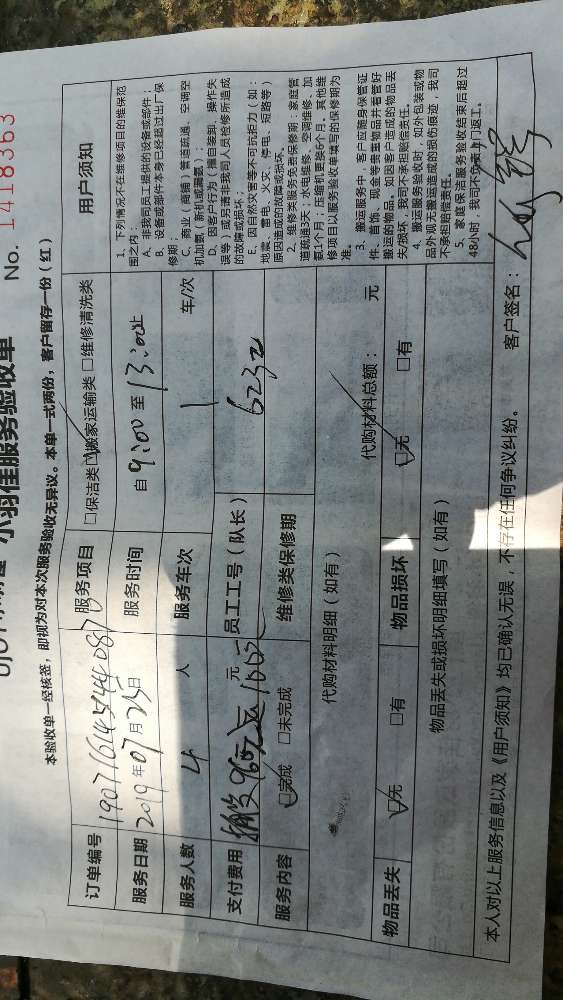 小羽佳服务验收单
No. 1418363
本验收单一经核签，即视为对本次服务验收无异议。本单一式两份，客户留存一份（红）
订单编号
服务项目 □保洁类 ☑搬家运输类 □维修清洗类
服务日期 2019年07月25日
服务时间 自 9:00 至 13:00止
服务人数 4 人
服务车次 1 车/次
支付费用 元
员工工号（队长） 6232
服务内容 ☑完成 □未完成
维修类保修期
代购材料明细（如有）
代购材料总额： 元
物品丢失 ☑无 □有
物品损坏 ☑无 □有
物品丢失或损坏明细填写（如有）
用户须知
1、下列情况不在维修项目的维保范
围之内：
A、非我司员工提供的设备或部件；
B、设备或部件本身已经超过出厂保
修期；
C、商业（商铺）管道疏通、空调空
机加氨（新机或漏氨）；
D、因客户行为（擅自装卸、操作失
误等）或者请非我司人员检修所造成
的故障或损坏；
E、因自然灾害等不可抗拒力（如：
地震、雷电、火灾、停电、短路等）
原因造成的故障或损坏。
2、维修类服务免费保修期：家庭管
道疏通3天；水电维修、空调维修、加
氨1个月；压缩机更换6个月。其他维
修项目以服务验收单填写的保修期为
准。
3、搬运服务中，客户应随身保管证
件、首饰、现金等贵重物品并看管好
搬运的物品，如因客户造成的物品丢
失/损坏，我司不承担赔偿责任。
4、搬运服务验收时，如外包装或物
品外观无搬运造成的损伤痕迹，我司
不承担赔偿责任。
5、家庭保洁服务验收结束后超过
48小时，我司不负责上门返工。
本人对以上服务信息以及《用户须知》均已确认无误，不存在任何争议纠纷。
客户签名：